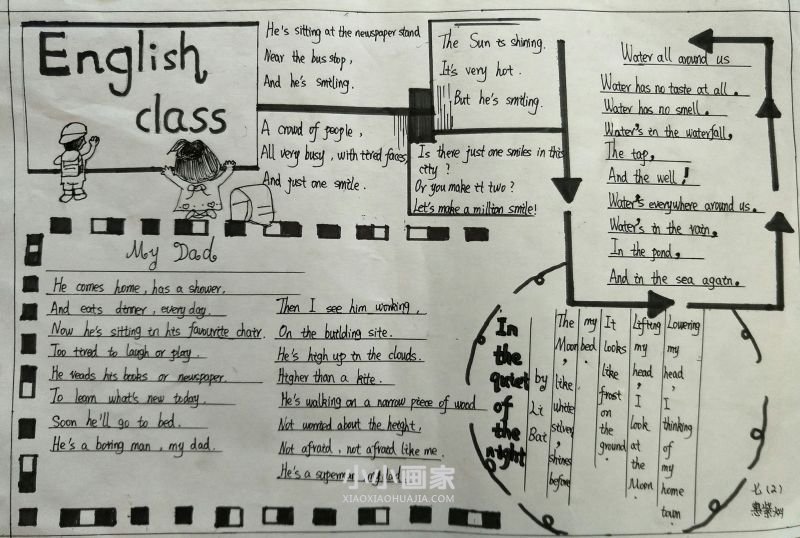 English
class
He's sitting at the newspaper stand
Near the bus stop,
And he's smiling.
A crowd of people,
All very busy, with tired faces
And just one smile.
The Sun is shining.
It's very hot.
But he's smiling.
Is there just one smiles in this
city?
Or you make it two?
Let's make a million smile!
Water all around us
Water has no taste at all.
Water has no smell.
Water's in the waterfall,
The tap,
And the well!
Water's everywhere around us.
Water's in the rain,
In the pond,
And in the sea again.
My Dad
He comes home, has a shower,
And eats dinner, every day.
Now he's sitting in his favourite chair.
Too tired to laugh or play.
He reads his books or newspaper.
To learn what's new today.
Soon he'll go to bed.
He's a boring man, my dad.
Then I see him working,
On the building site.
He's high up in the clouds.
Higher than a kite.
He's walking on a narrow piece of wood
Not worried about the height,
Not afraid, not afraid like me.
He's a superman, my dad
In the quiet of the night
by Li Bai
The Moon, like white silver, shines before
my bed.
It looks like frost on the ground.
Lifting my head, I look at the Moon.
Lowering my head, I thinking of my home town.
七(2)
小小画家
XIAOXIAOHUAJIA.COM